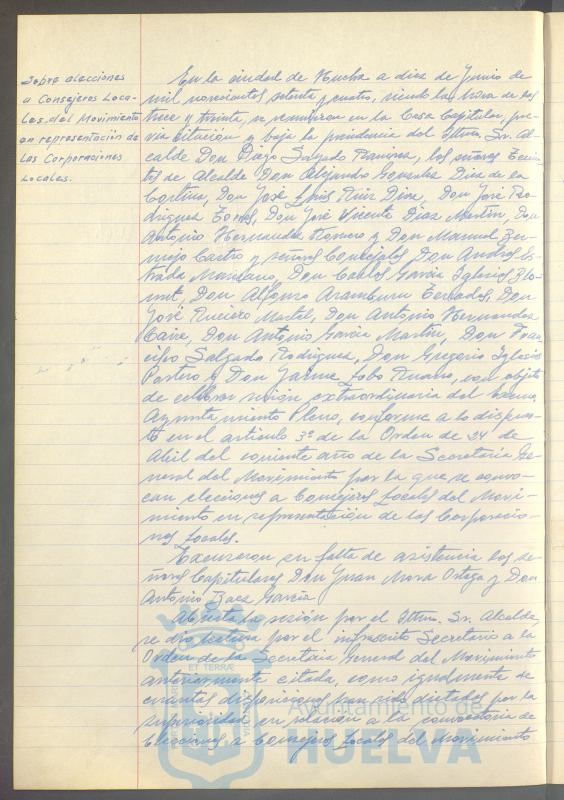 Sobre elecciones
a Consejeros Loca-
les del Movimiento
en representación de
las Corporaciones
Locales.
En la ciudad de Huelva a diez de Junio de
mil novecientos setenta y cuatro, siendo las hora de las
trece y treinta, se reunieron en la Casa Capitular, pre-
via citación y bajo la presidencia del Iltmo. Sr. Al-
calde Don Diego Salgado Ramírez, los señores Tenien-
tes de Alcalde Don Alejandro González Díaz de la
Cortina, Don José Luis Ruiz Díaz, Don José Ro-
dríguez Don José Vicente Díaz Martín, Don
Antonio Hernández Romero y Don Manuel Ber-
mejo Castro y señores Concejales Don Andrés Es-
trada Manzano, Don Carlos García Iglesias
Don Alfonso Aramburu Terrades, Don
José Martel, Don Antonio Hernández
Don Antonio García Martín, Don Fran-
cisco Salgado Rodríguez, Don Gregorio Iglesias
y Don Jaime Lobo con objeto
de celebrar sesión extraordinaria del Excmo.
Ayuntamiento Pleno, conforme a lo dispues-
to en el artículo 3º de la Orden de 24 de
Abril del corriente año de la Secretaría Ge-
neral del Movimiento por la que se convo-
can elecciones a Consejeros Locales del Movi-
miento en representación de las Corporacio-
nes Locales.
Excusaron su falta de asistencia los se-
ñores Capitulares Don Juan Mora Ortega y Don
Antonio Baez García
Abierta la sesión por el Iltmo. Sr. Alcalde,
se dio lectura por el infrascrito Secretario a la
Orden de la Secretaría General del Movimiento
anteriormente citada, como igualmente de
cuantas disposiciones han sido dictadas por la
superioridad en relación a la convocatoria de
Elecciones a Consejeros Locales del Movimiento
ET TERRÆ
Ayuntamiento de
HUELVA